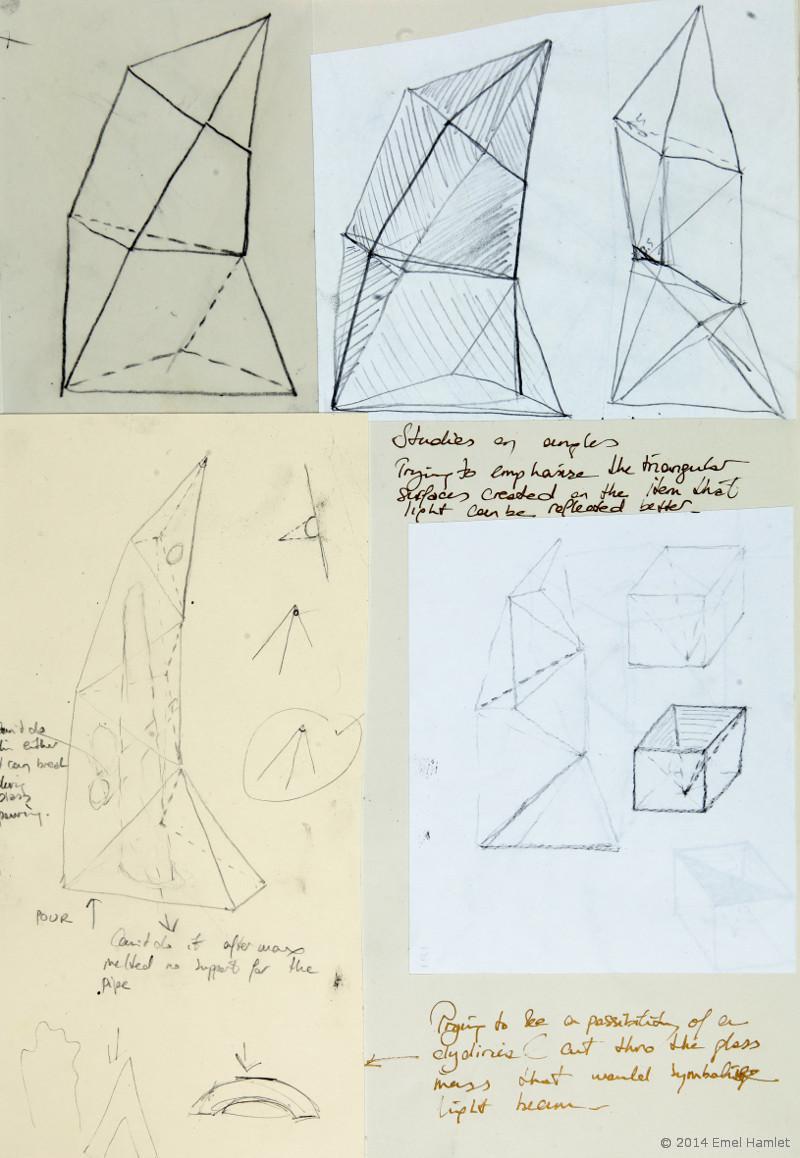 Studies on angles
Trying to emphasize the triangular
surfaces created on the item that
light can be reflected better
can't do
in either
can break
glass
pouring.
POUR
Can't do it after wax
melted no support for the
pipe
Trying to see a possibility of a
cut thro the glass
mass that would symbolize
light beam
© 2014 Emel Hamlet